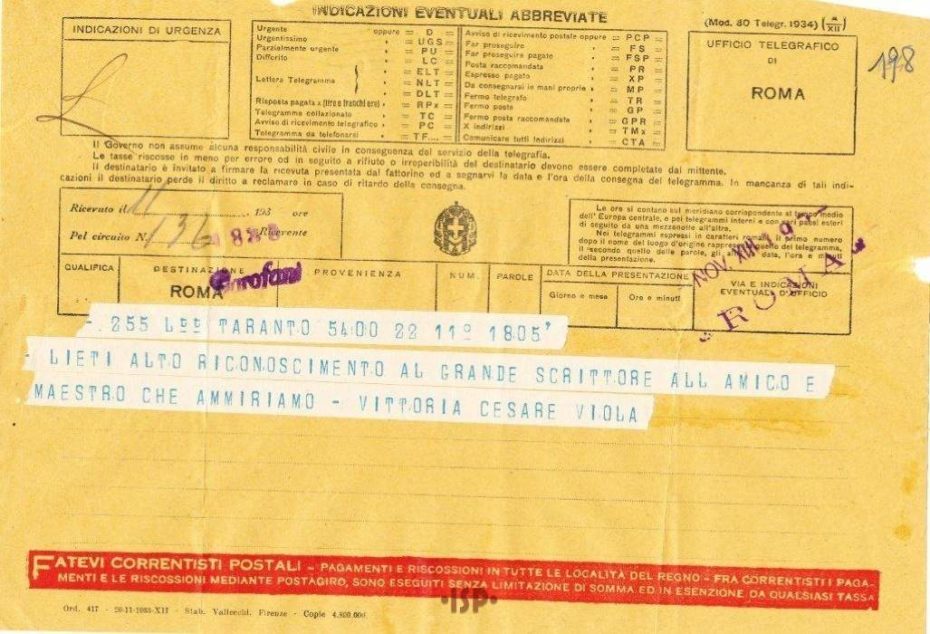 INDICAZIONI EVENTUALI ABBREVIATE
(Mod. 80 Telegr. 1934) (X/XII)
198
INDICAZIONI DI URGENZA
Urgente oppure = D =
Urgentissimo = UGS =
Parzialmente urgente = PU =
Differito = LC =
Lettera Telegramma = ELT =
= NLT =
= DLT =
Risposta pagata x (lire o franchi oro) = RPx =
Telegramma collazionato = TC =
Avviso di ricevimento telegrafico = PC =
Telegramma da telefonarsi = TF.... =
Avviso di ricevimento postale oppure = PCP =
Far proseguire = FS =
Far proseguire pagato = FSP =
Posta raccomandata = PR =
Espresso pagato = XP =
Da consegnarsi in mani proprie = MP =
Fermo telegrafo = TR =
Fermo posta = GP =
Fermo posta raccomandata = GPR =
X indirizzi = TMx =
Comunicare tutti indirizzi = CTA =
UFFICIO TELEGRAFICO
DI
ROMA
Il Governo non assume alcuna responsabilità civile in conseguenza del servizio della telegrafia.
Le tasse riscosse in meno per errore od in seguito a rifiuto o irreperibilità del destinatario devono essere completate dal mittente.
Il destinatario è invitato a firmare la ricevuta presentata dal fattorino ed a segnarvi la data e l'ora della consegna del telegramma. In mancanza di tali indi-
cazioni il destinatario perde il diritto a reclamare in caso di ritardo della consegna.
Ricevuto il 11 193 ore
Pel circuito N. 136 Ricevente
Le ore si contano sul meridiano corrispondente al tempo medio
dell'Europa centrale, e pei telegrammi interni e con vari paesi esteri
di seguito da una mezzanotte all'altra.
Nei telegrammi espressi in caratteri romani il primo numero
dopo il nome del luogo d'origine rappresenta quello del telegramma,
il secondo quello delle parole, gli altri la data, l'ora e i minuti
della presentazione.
NOV. XIII 19
ROMA
QUALIFICA
DESTINAZIONE
PROVENIENZA
NUM.
PAROLE
DATA DELLA PRESENTAZIONE
Giorno e mese
Ore e minuti
VIA E INDICAZIONI
EVENTUALI D'UFFICIO
ROMA
- 255 L TARANTO 5400 22 11° 1805'
- LIETI ALTO RICONOSCIMENTO AL GRANDE SCRITTORE ALL AMICO E
MAESTRO CHE AMMIRIAMO - VITTORIA CESARE VIOLA
FATEVI CORRENTISTI POSTALI - PAGAMENTI E RISCOSSIONI IN TUTTE LE LOCALITÀ DEL REGNO - FRA CORRENTISTI I PAGA-
MENTI E LE RISCOSSIONI MEDIANTE POSTAGIRO, SONO ESEGUITI SENZA LIMITAZIONE DI SOMMA ED IN ESENZIONE DA QUALSIASI TASSA
•ISP•
Ord. 417 - XII Stab. Vallecchi, Firenze - Copie